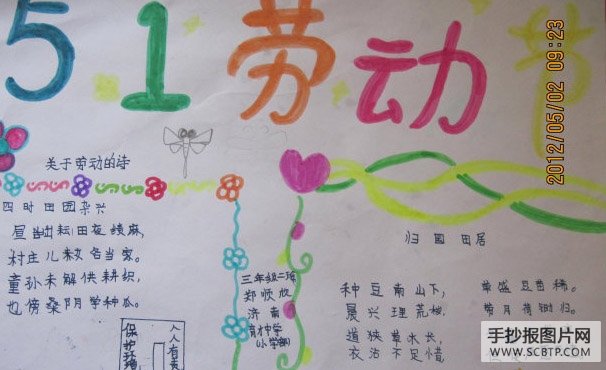 51劳动节
2012/05/02 09:23
关于劳动的诗
四时田园杂兴
昼出耘田夜绩麻,
村庄儿女各当家。
童孙未解供耕织,
也傍桑阴学种瓜。
三年级二班
郑顺放
济南
育才中学
(小学部)
保护环境
人人有责
归园田居
种豆南山下, 草盛豆苗稀。
晨兴理荒秽, 带月荷锄归。
道狭草木长,
衣沾不足惜,
手抄报图片网
WWW.SCBTP.COM